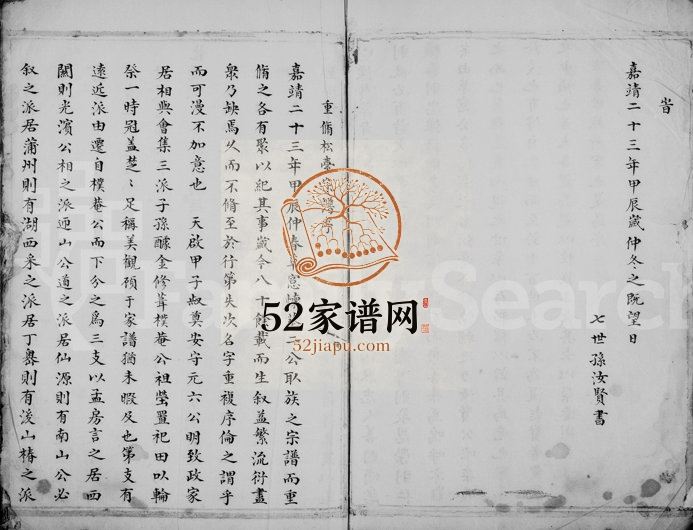 旹
嘉靖二十三年甲辰歲仲冬之既望日
七世孫汝賢書
重脩松臺
嘉靖二十三年甲辰仲春
二公取族之宗譜而重
脩之各有聚以紀其事歲今八十餘載而生叙益繁流衍盡
衆乃缺焉久而不脩至於行第失次名字重複序倫之謂乎
而可漫不加意也 天啟甲子叔奠安守元六公明致政家
居相與會集三派子孫醵金修葺樸菴公祖塋置祀田以輪
祭一時冠盖楚〻足稱美觀須于家譜猶未暇及也第支有
遠近派由遷自樸菴公而下分之爲三支以孟房言之居四
關則光濱公相之派迊山公道之派居仙源則有南山公必
叙之派居蒲州則有湖西釆之派居丁奥則有後山椿之派
52家谱网
52jiapu.com
FamilySearch